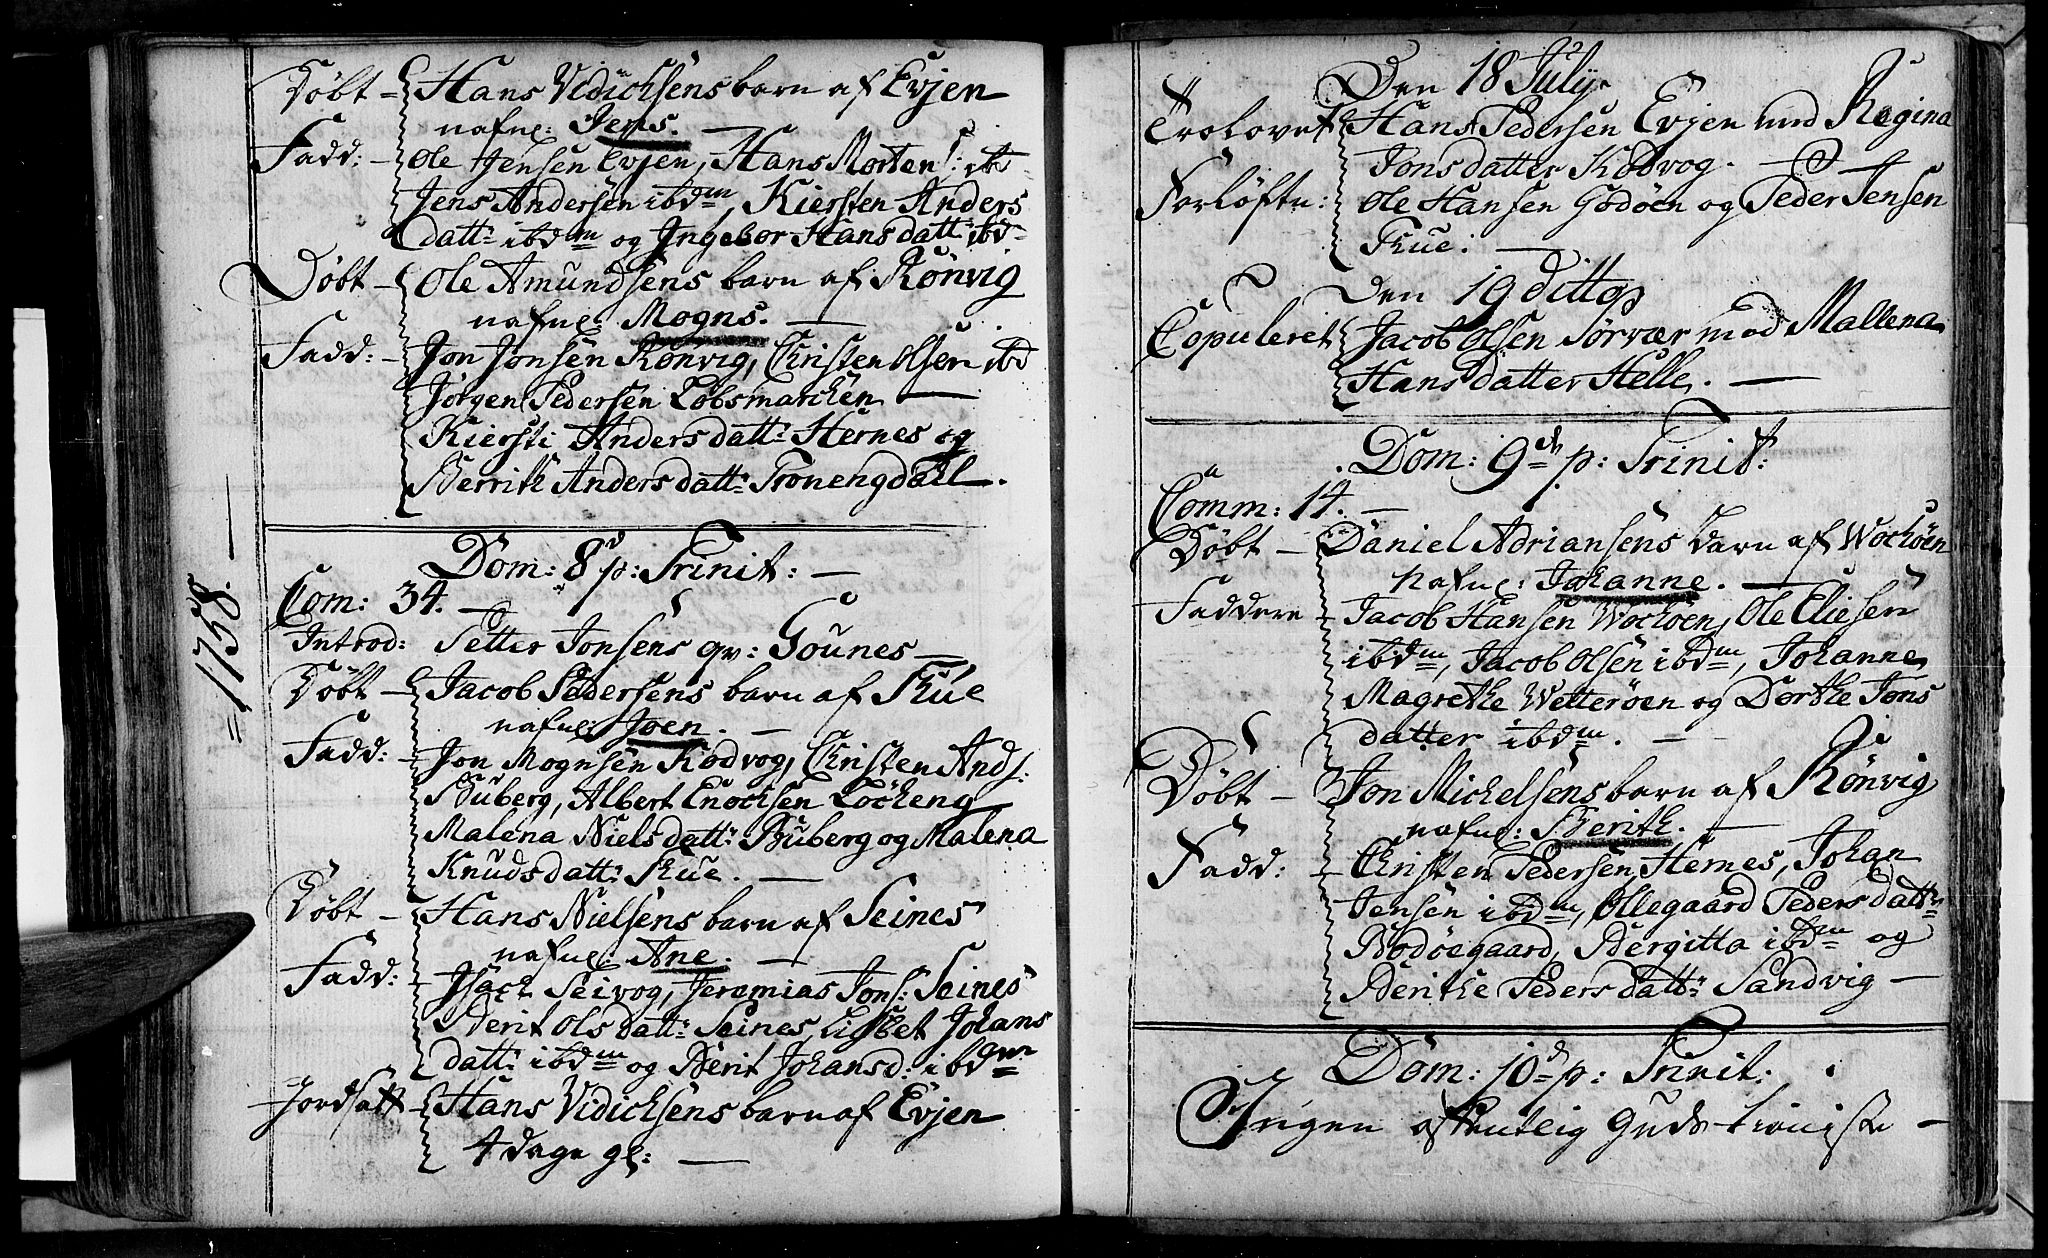 Döbt - Hans Vidichsens barn af Evjen
nafne: Jens. —
Fadd: - Ole Jensen Evjen, Hans Morten s: ib
Jens Andersen ibdm, Kiersten Anders
datt: ibdm og Ingebor Hans datt: ibd
Döbt - Ole Amundsens barn af Rönvig
nafne: Mogns. —
Fadd: - Jon Jonsen Rönvig, Christen Olsen ibd
Jörgen Pedersen Löbsmarchen —
Kiersti Anders datt: Hernes og
Berrith Anders datt: Tronengdall.
=1758.—
Dom: 8d p: Trinit: —
Com: 34. —
Introd: Petter Jonsens qv: Gounes —
Döbt - Jacob Pedersens barn af Skue
nafne: Joen. —
Fadd: - Jon Mognsen Kodvog, Christen Ands:
Buberg, Albert Enochsen Löckeng
Malena Niels datt: Buberg og Malena
Knuds datt: Skue. —
Döbt - Hans Nielsens barn af Seines
nafne: Ane. —
Fadd: - Isach Seivog, Jeremias Jons: Seines
Berit Ols datt: Seines Lisbet Johans
datt: ibdm og Berit Johansd: ibdm
Jordsatt - Hans Vidichsens barn af Evjen
4 dage gl: —
Den 18 July
Trolovet Hans Pedersen Evjen med Regina
Jons datter Kodvog.
Forlöftn: Ole Hansen Godöen og Peder Jensen
Skue. —
Den 19 ditto
Copuleret Jacob Olsen Sörvær med Mallena
Hans datter Helle. —
Dom: 9d p: Trinit:
Comm: 14. —
Döbt - Daniel Adriansens barn af Wochöen
nafne: Johanne. —
Faddere - Jacob Hansen Wochöen, Ole Eliesen
ibdm, Jacob Olsen ibdm, Johanne
Magrethe Wetteröen og Dorthe Jons
datter ibdm. —
Döbt - Jon Michelsens barn af Rönvig
nafne: Berith. —
Fadd: - Christen Pedersen Hernes, Johan
Jensen ibdm, Ollegaard Peders datt:
Bodöegaard, Bergitta ibdm og
Berithe Peders datt: Sandvig —
Dom: 10d p: Trinit:
Ingen offentlig Guds tieniste —